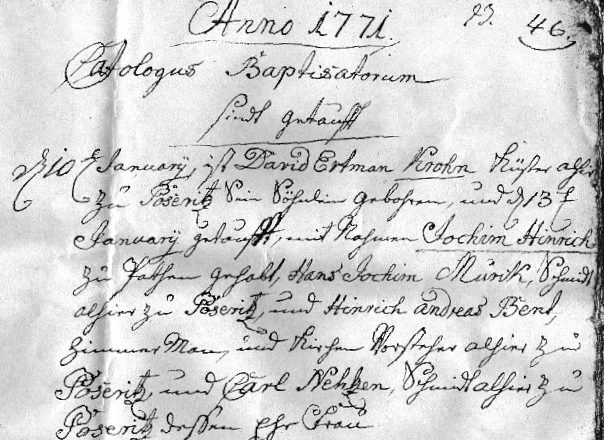 Anno 1771. 23. 46.
Catologus Baptisatorum
sindt getaufft
d 10 t January, ist David Ertman Krohn Küster alhier
zu Poseritz Sein Söhnlin gebohren, und d 13 t
January getaufft, mit Nahmen Jochim Hinrich
zu Pathen gehabt, Hans Jochim Mürik, Schmidt
alhier zu Poseritz, und Hinrich andreas Bent,
Zimmer Man, und Kirchen Vorsteher alhier zu
Poseritz, und Carl Nehken, Schmidt alhier zu
Poseritz dessen Ehe Frau